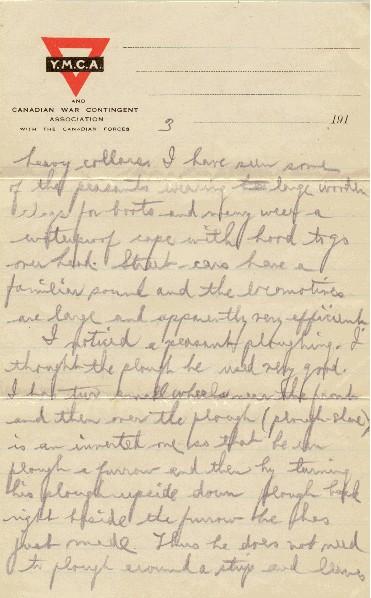 Y.M.C.A.
AND
CANADIAN WAR CONTINGENT
ASSOCIATION
WITH THE CANADIAN FORCES
191
3
heavy collars. I have seen some
of the peasants wearing large wooden
clogs for boots and many wear a
waterproof cape with hood to go
over head. Street-cars have a
familiar sound and the locomotives
are large and apparently very efficient.
I noticed a peasant ploughing. I
thought the plough he used very good.
I has two small wheels near the front
and then over the plough (plough-share)
is an inverted one so that he can
plough a furrow and then by turning
his plough upside down plough back
right beside the furrow he has
just made. Thus he does not need
to plough around a strip and leaves